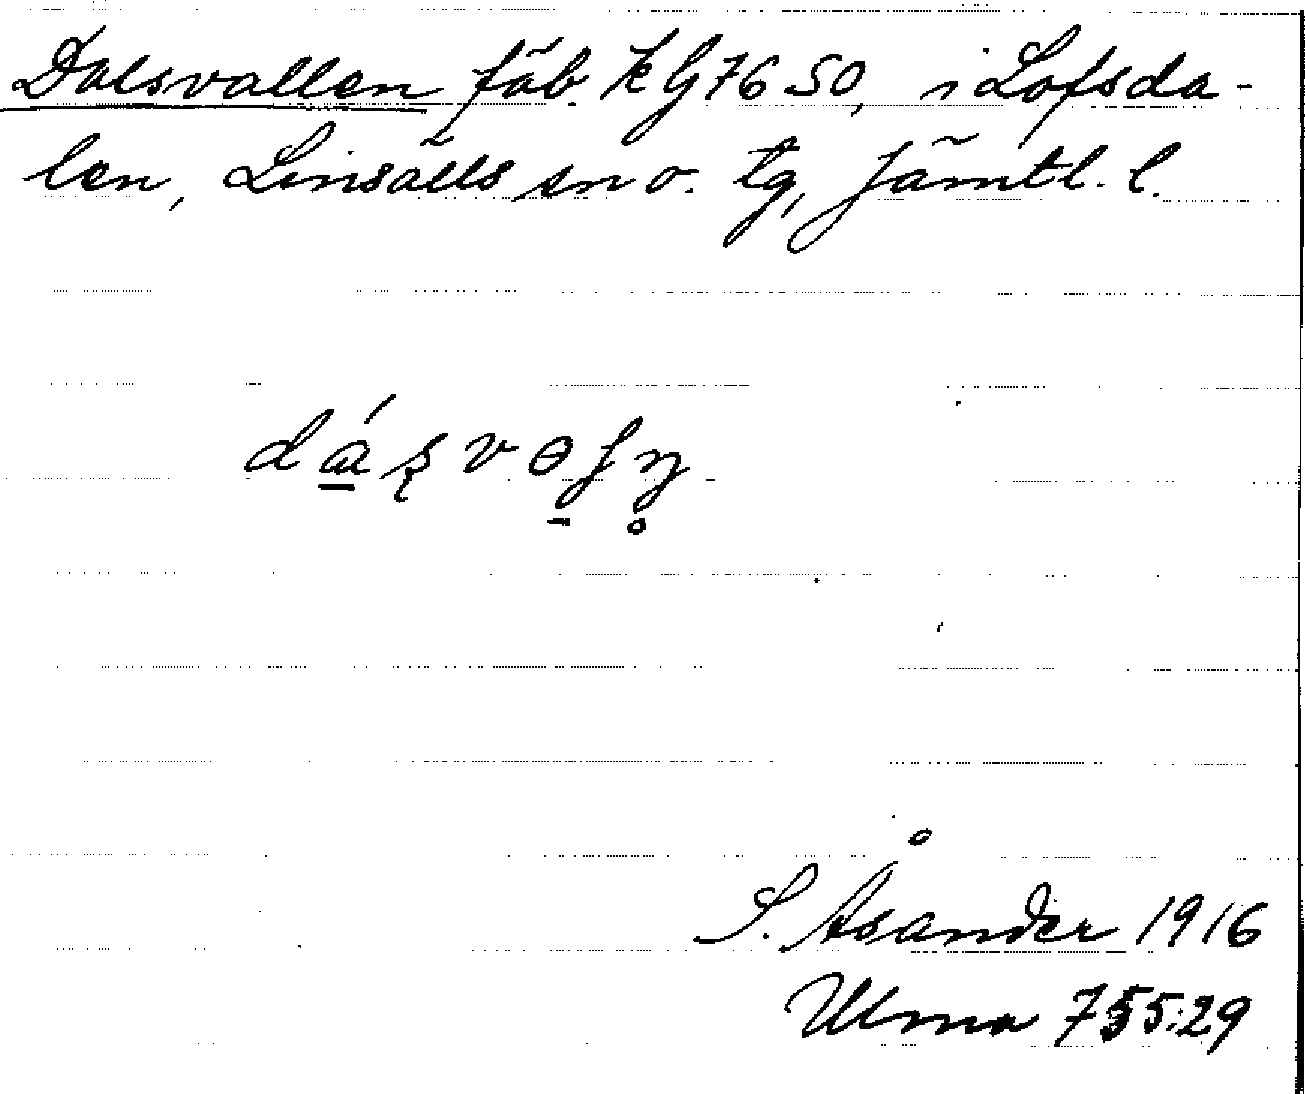 Dalsvallen fäb. KG7650, i Lofsda-
len, Linsälls sn o. tg, Jämtl. l.
S. Åsander 1916
Ulma 755:29